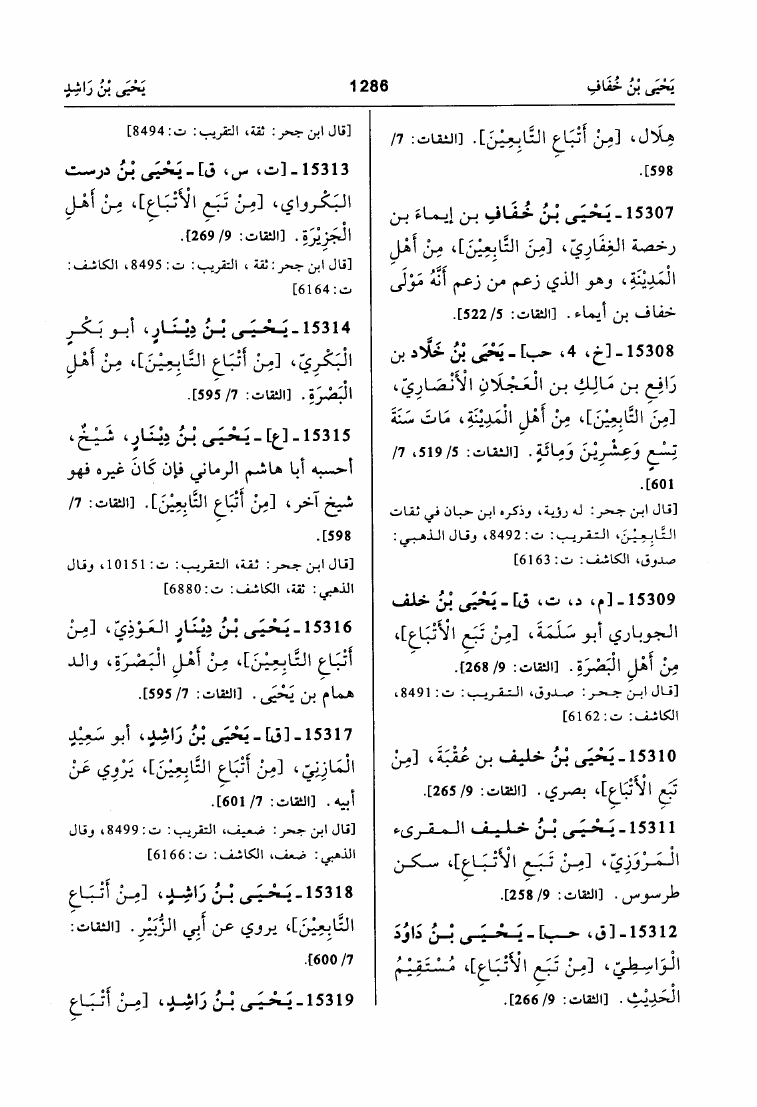 يَحْيَى بْنُ خُفَافِ
1286
يَحْيَى بْنُ رَاشِدٍ
هِلَال، [مِنْ أَتْبَاعِ التَّابِعِيْنَ]. [الثقات: 7/
598].
15307-يَحْيَى بْنُ خُفَافِ بن إيماءَ بن
رخصة الغِفَارِيّ، [مِنَ التَّابِعِيْنَ]، مِنْ أَهْلِ
الْمَدِيْنَةِ، وهو الذي زعم من زعم أَنَّهُ مَوْلَى
خفاف بن أيماء. [الثقات: 5/ 522].
15308-[خ، 4، حب]-يَحْيَى بْنُ خَلَّادِ بن
رَافِعِ بن مَالِكِ بن الْعَجْلَانِ الأَنْصَارِيّ،
[مِنَ التَّابِعِيْنَ]، مِنْ أَهْلِ الْمَدِيْنَةِ، مَاتَ سَنَةَ
تِسْعٍ وَعِشْرِيْنَ وَمِائَةٍ. [الثقات: 5/ 519، 7/
601].
[قال ابن جحر: له رؤية، وذكره ابن حبان في ثقات
التَّابِعِيْنَ، التقريب: ت: 8492، وقال الذهبي:
صدوق، الكاشف: ت: 6163]
15309-[م، د، ت، ق]-يَحْيَى بْنُ خلف
الجوباري أبو سَلَمَةَ، [مِنْ تَبَعِ الأَتْبَاعِ]،
مِنْ أَهْلِ الْبَصْرَةِ. [الثقات: 9/ 268].
[قال ابن جحر: صدوق، التقريب: ت: 8491،
الكاشف: ت: 6162]
15310-يَحْيَى بْنُ خليف بن عُقْبَةَ، [مِنْ
تَبَعِ الأَتْبَاعِ]، بصري. [الثقات: 9/ 265].
15311-يَحْيَى بْنُ خليف المقرىء
الْمَرْوَزِيّ، [مِنْ تَبَعِ الأَتْبَاعِ]، سكن
طرسوس. [الثقات: 9/ 258].
15312-[ق، حب]-يَحْيَى بْنُ دَاوُدَ
الْوَاسِطِيّ، [مِنْ تَبَعِ الأَتْبَاعِ]، مُسْتَقِيْمُ
الْحَدِيْثِ. [الثقات: 9/ 266].
[قال ابن جحر: ثقة، التقريب: ت: 8494]
15313-[ت، س، ق]-يَحْيَى بْنُ درست
البَكْرواي، [مِنْ تَبَعِ الأَتْبَاعِ]، مِنْ أَهْلِ
الْجَزِيْرَةِ. [الثقات: 9/ 269].
[قال ابن جحر: ثقة، التقريب: ت: 8495، الكاشف:
ت: 6164]
15314-يَحْيَى بْنُ دِيْنَارٍ، أبو بَكْرٍ
الْبَكْرِيّ، [مِنْ أَتْبَاعِ التَّابِعِيْنَ]، مِنْ أَهْلِ
الْبَصْرَةِ. [الثقات: 7/ 595].
15315-[ع]-يَحْيَى بْنُ دِيْنَارٍ، شَيْخٌ،
أحسبه أبا هاشم الرماني فإن كَانَ غيره فهو
شيخ آخر، [مِنْ أَتْبَاعِ التَّابِعِيْنَ]. [الثقات: 7/
598].
[قال ابن جحر: ثقة، التقريب: ت: 10151، وقال
الذهبي: ثقة، الكاشف: ت: 6880]
15316-يَحْيَى بْنُ دِيْنَارٍ العَوْذِيّ، [مِنْ
أَتْبَاعِ التَّابِعِيْنَ]، مِنْ أَهْلِ الْبَصْرَةِ، والد
همام بن يَحْيَى. [الثقات: 7/ 595].
15317-[ق]-يَحْيَى بْنُ رَاشِدٍ، أبو سَعِيْدٍ
الْمَازِنِيّ، [مِنْ أَتْبَاعِ التَّابِعِيْنَ]، يَرْوِي عَنْ
أبيه. [الثقات: 7/ 601].
[قال ابن جحر: ضعيف، التقريب: ت: 8499، وقال
الذهبي: ضعف، الكاشف: ت: 6166]
15318-يَحْيَى بْنُ رَاشِدٍ، [مِنْ أَتْبَاعِ
التَّابِعِيْنَ]، يروي عن أَبِي الزُّبَيْرِ. [الثقات:
7/ 600].
15319-يَحْيَى بْنُ رَاشِدٍ، [مِنْ أَتْبَاعِ